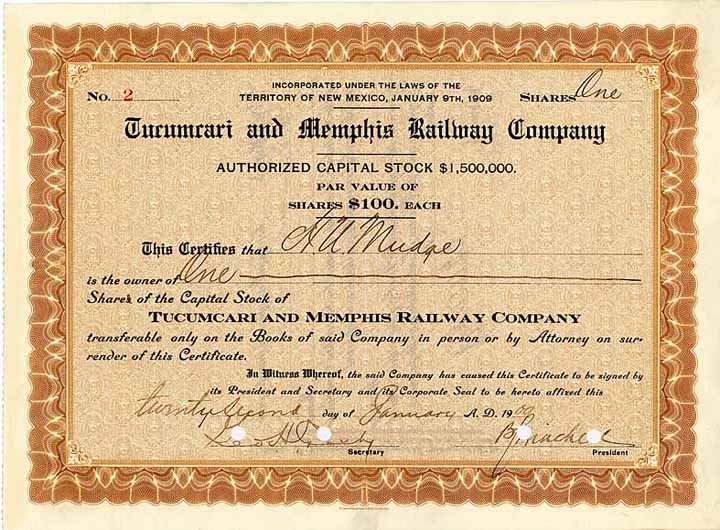 INCORPORATED UNDER THE LAWS OF THE
No. 2 TERRITORY OF NEW MEXICO, JANUARY 9TH, 1909 SHARES One
Tucumcari and Memphis Railway Company
AUTHORIZED CAPITAL STOCK $1,500,000.
PAR VALUE OF
SHARES $100. EACH
This Certifies that H A Mudge
is the owner of One
Shares of the Capital Stock of
TUCUMCARI AND MEMPHIS RAILWAY COMPANY
transferable only on the Books of said Company in person or by Attorney on sur-
render of this Certificate.
In Witness Whereof, the said Company has caused this Certificate to be signed by
its President and Secretary and its Corporate Seal to be hereto affixed this
twenty second day of January A. D. 1909
Secretary President